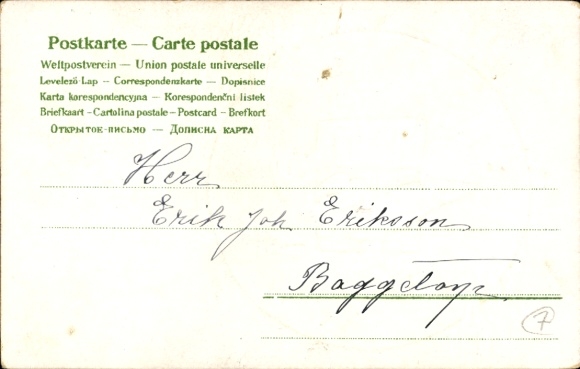 Postkarte — Carte postale
Weltpostverein — Union postale universelle
Levelező-Lap — Correspondenzkarte — Dopisnice
Karta korespondencyjna — Korespondenční lístek
Briefkaart – Cartolina postale – Postcard – Brefkort
Открыток-письмо — Дописна карта
Herr
Erik Joh Eriksson
Baggetorp
7